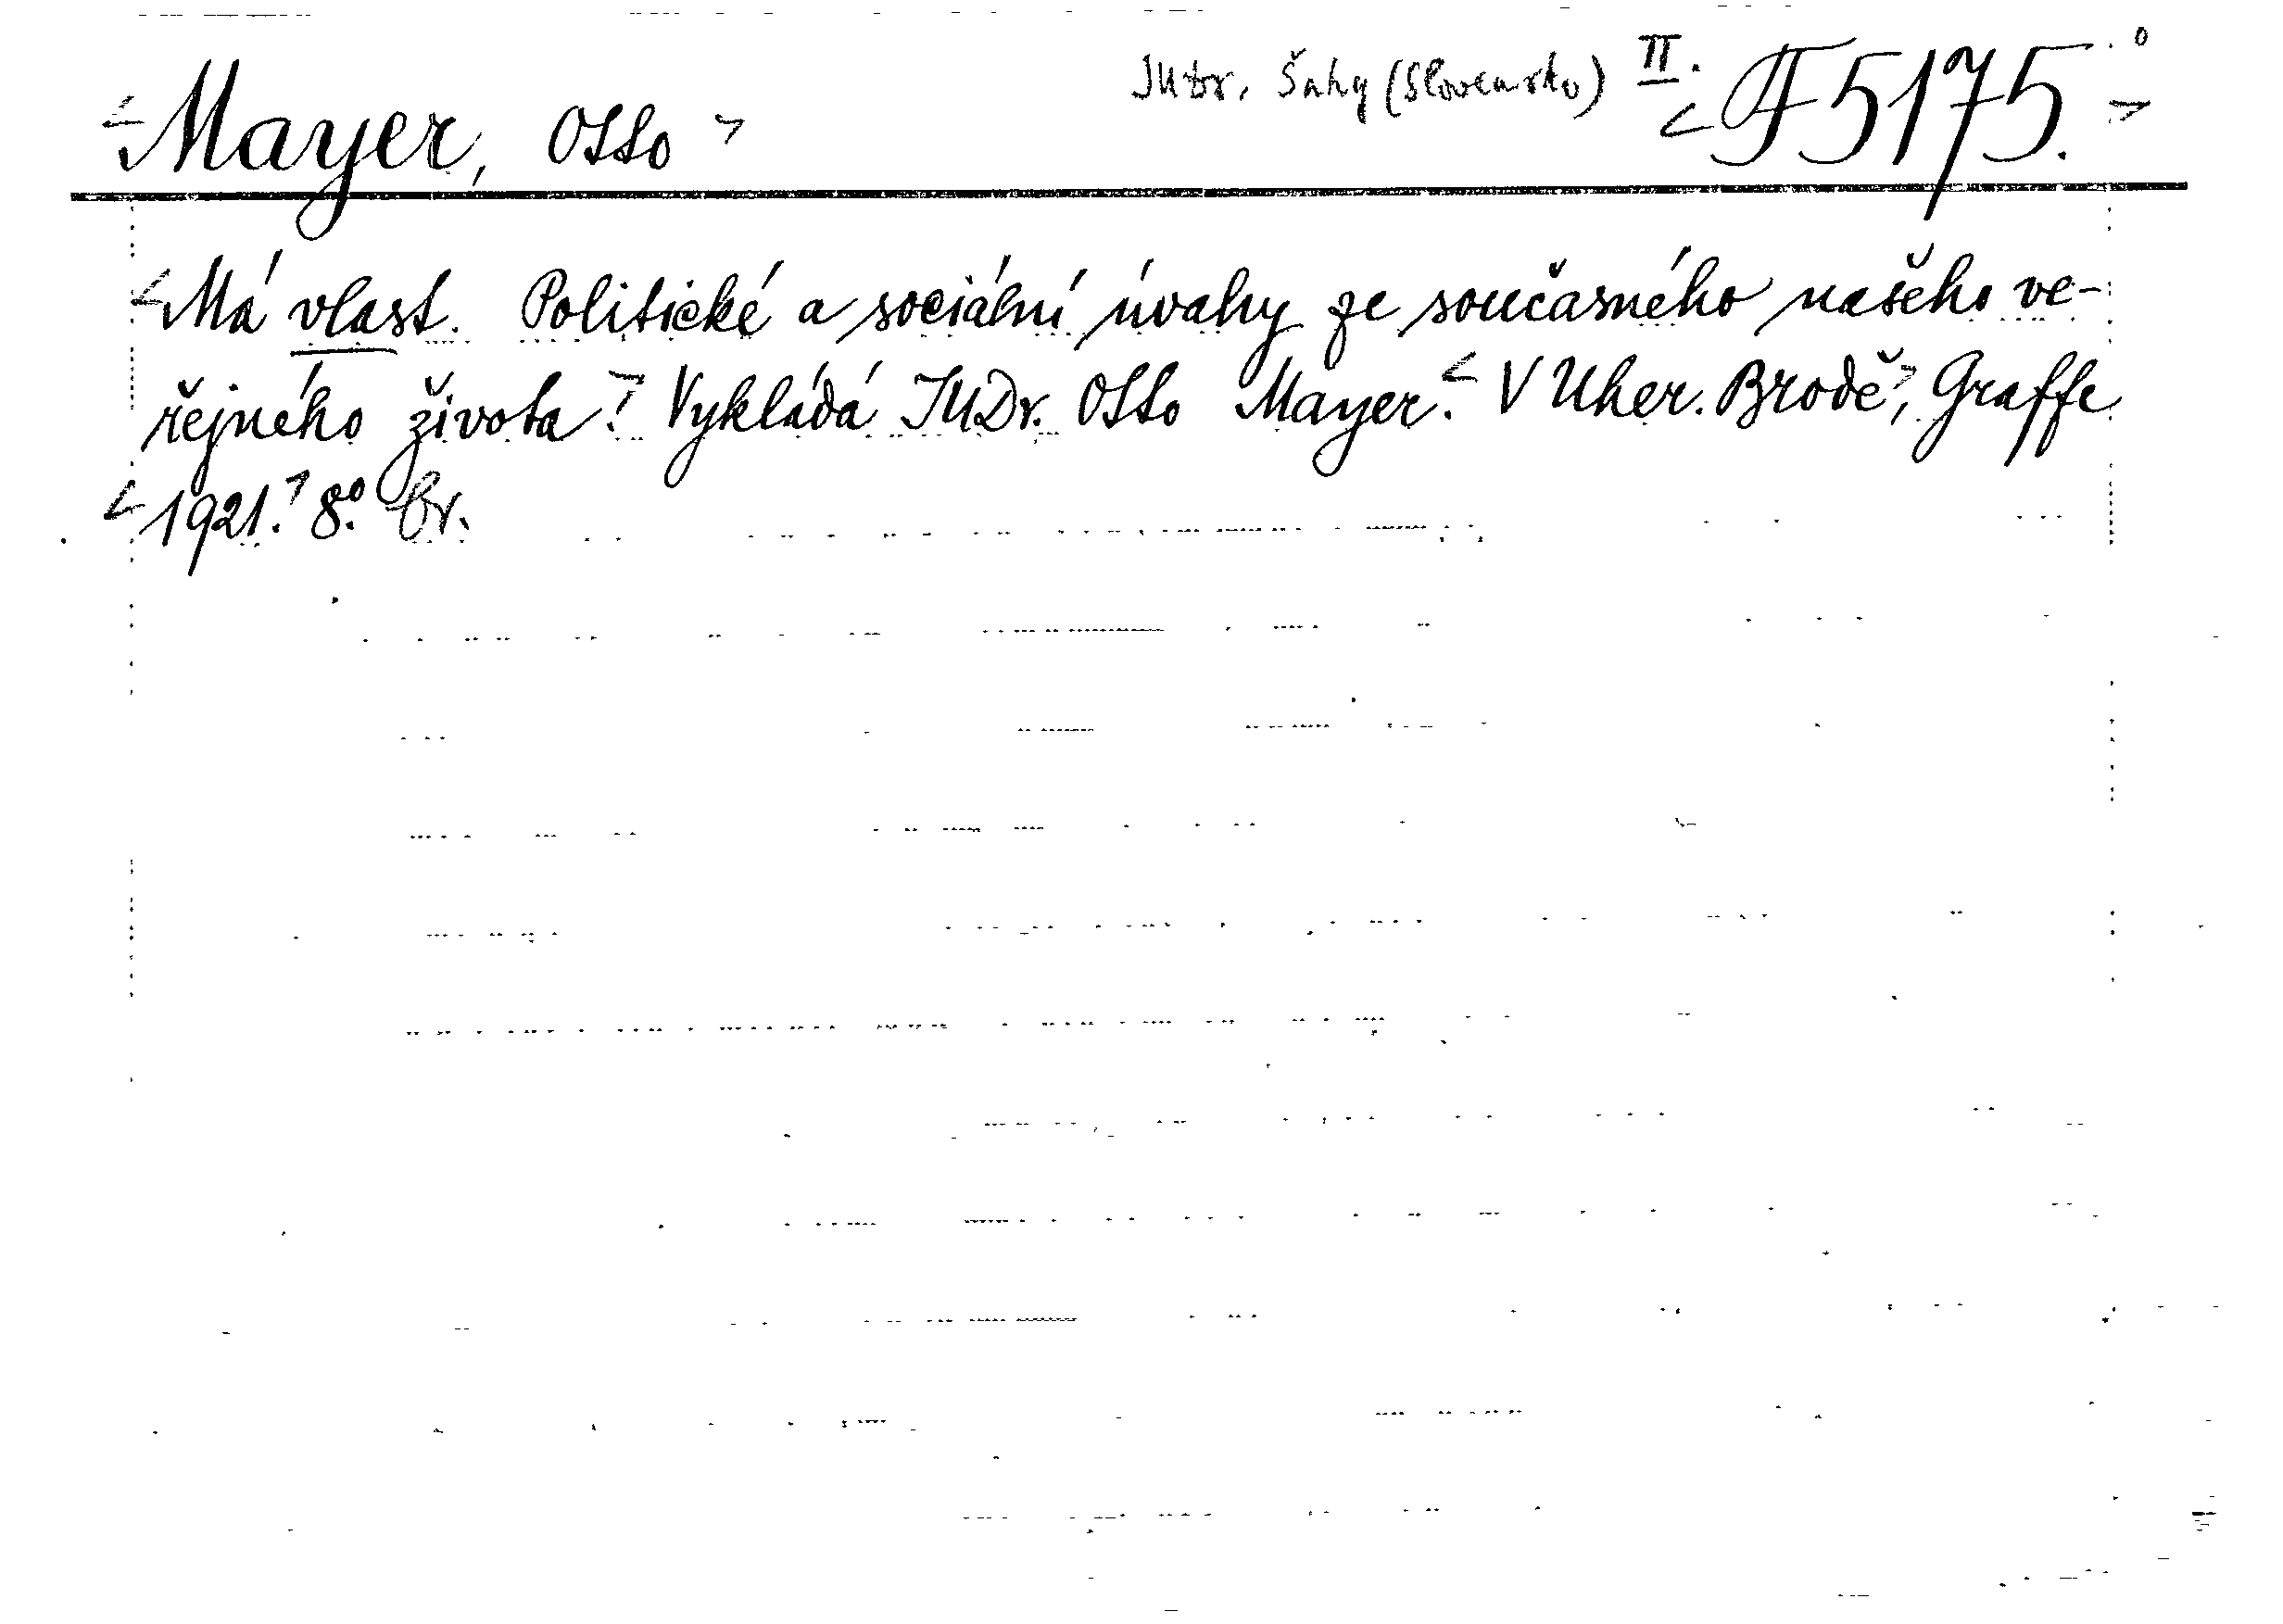 <Mayer, Otto> JUDr. Šahy (Slovensko) II. <F 5175.>
<Má vlast. Politické a sociální úvahy ze současného našeho ve-
řejného života.> Vykládá JUDr. Otto Mayer. <V Uher. Brodě>, Graffe
<1921.> 8º. br.